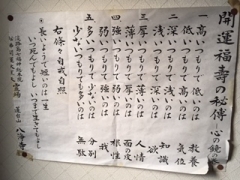 開運福壽の秘傳 心の鏡
一 高いつもりで低いのは 教養
低いつもりで高いのは 気位
二 深いつもりで浅いのは 知識
浅いつもりで深いのは 欲
三 厚いつもりで薄いのは 人情
薄いつもりで厚いのは 面皮
四 強いつもりで弱いのは 根性
弱いつもりで強いのは 我
五 多いつもりで少ないのは 分別
少ないつもりで多いのは 無駄
右條々自戒自照
長いようで短いのは一生
いつ死んでもよし いつまで生きてもよし